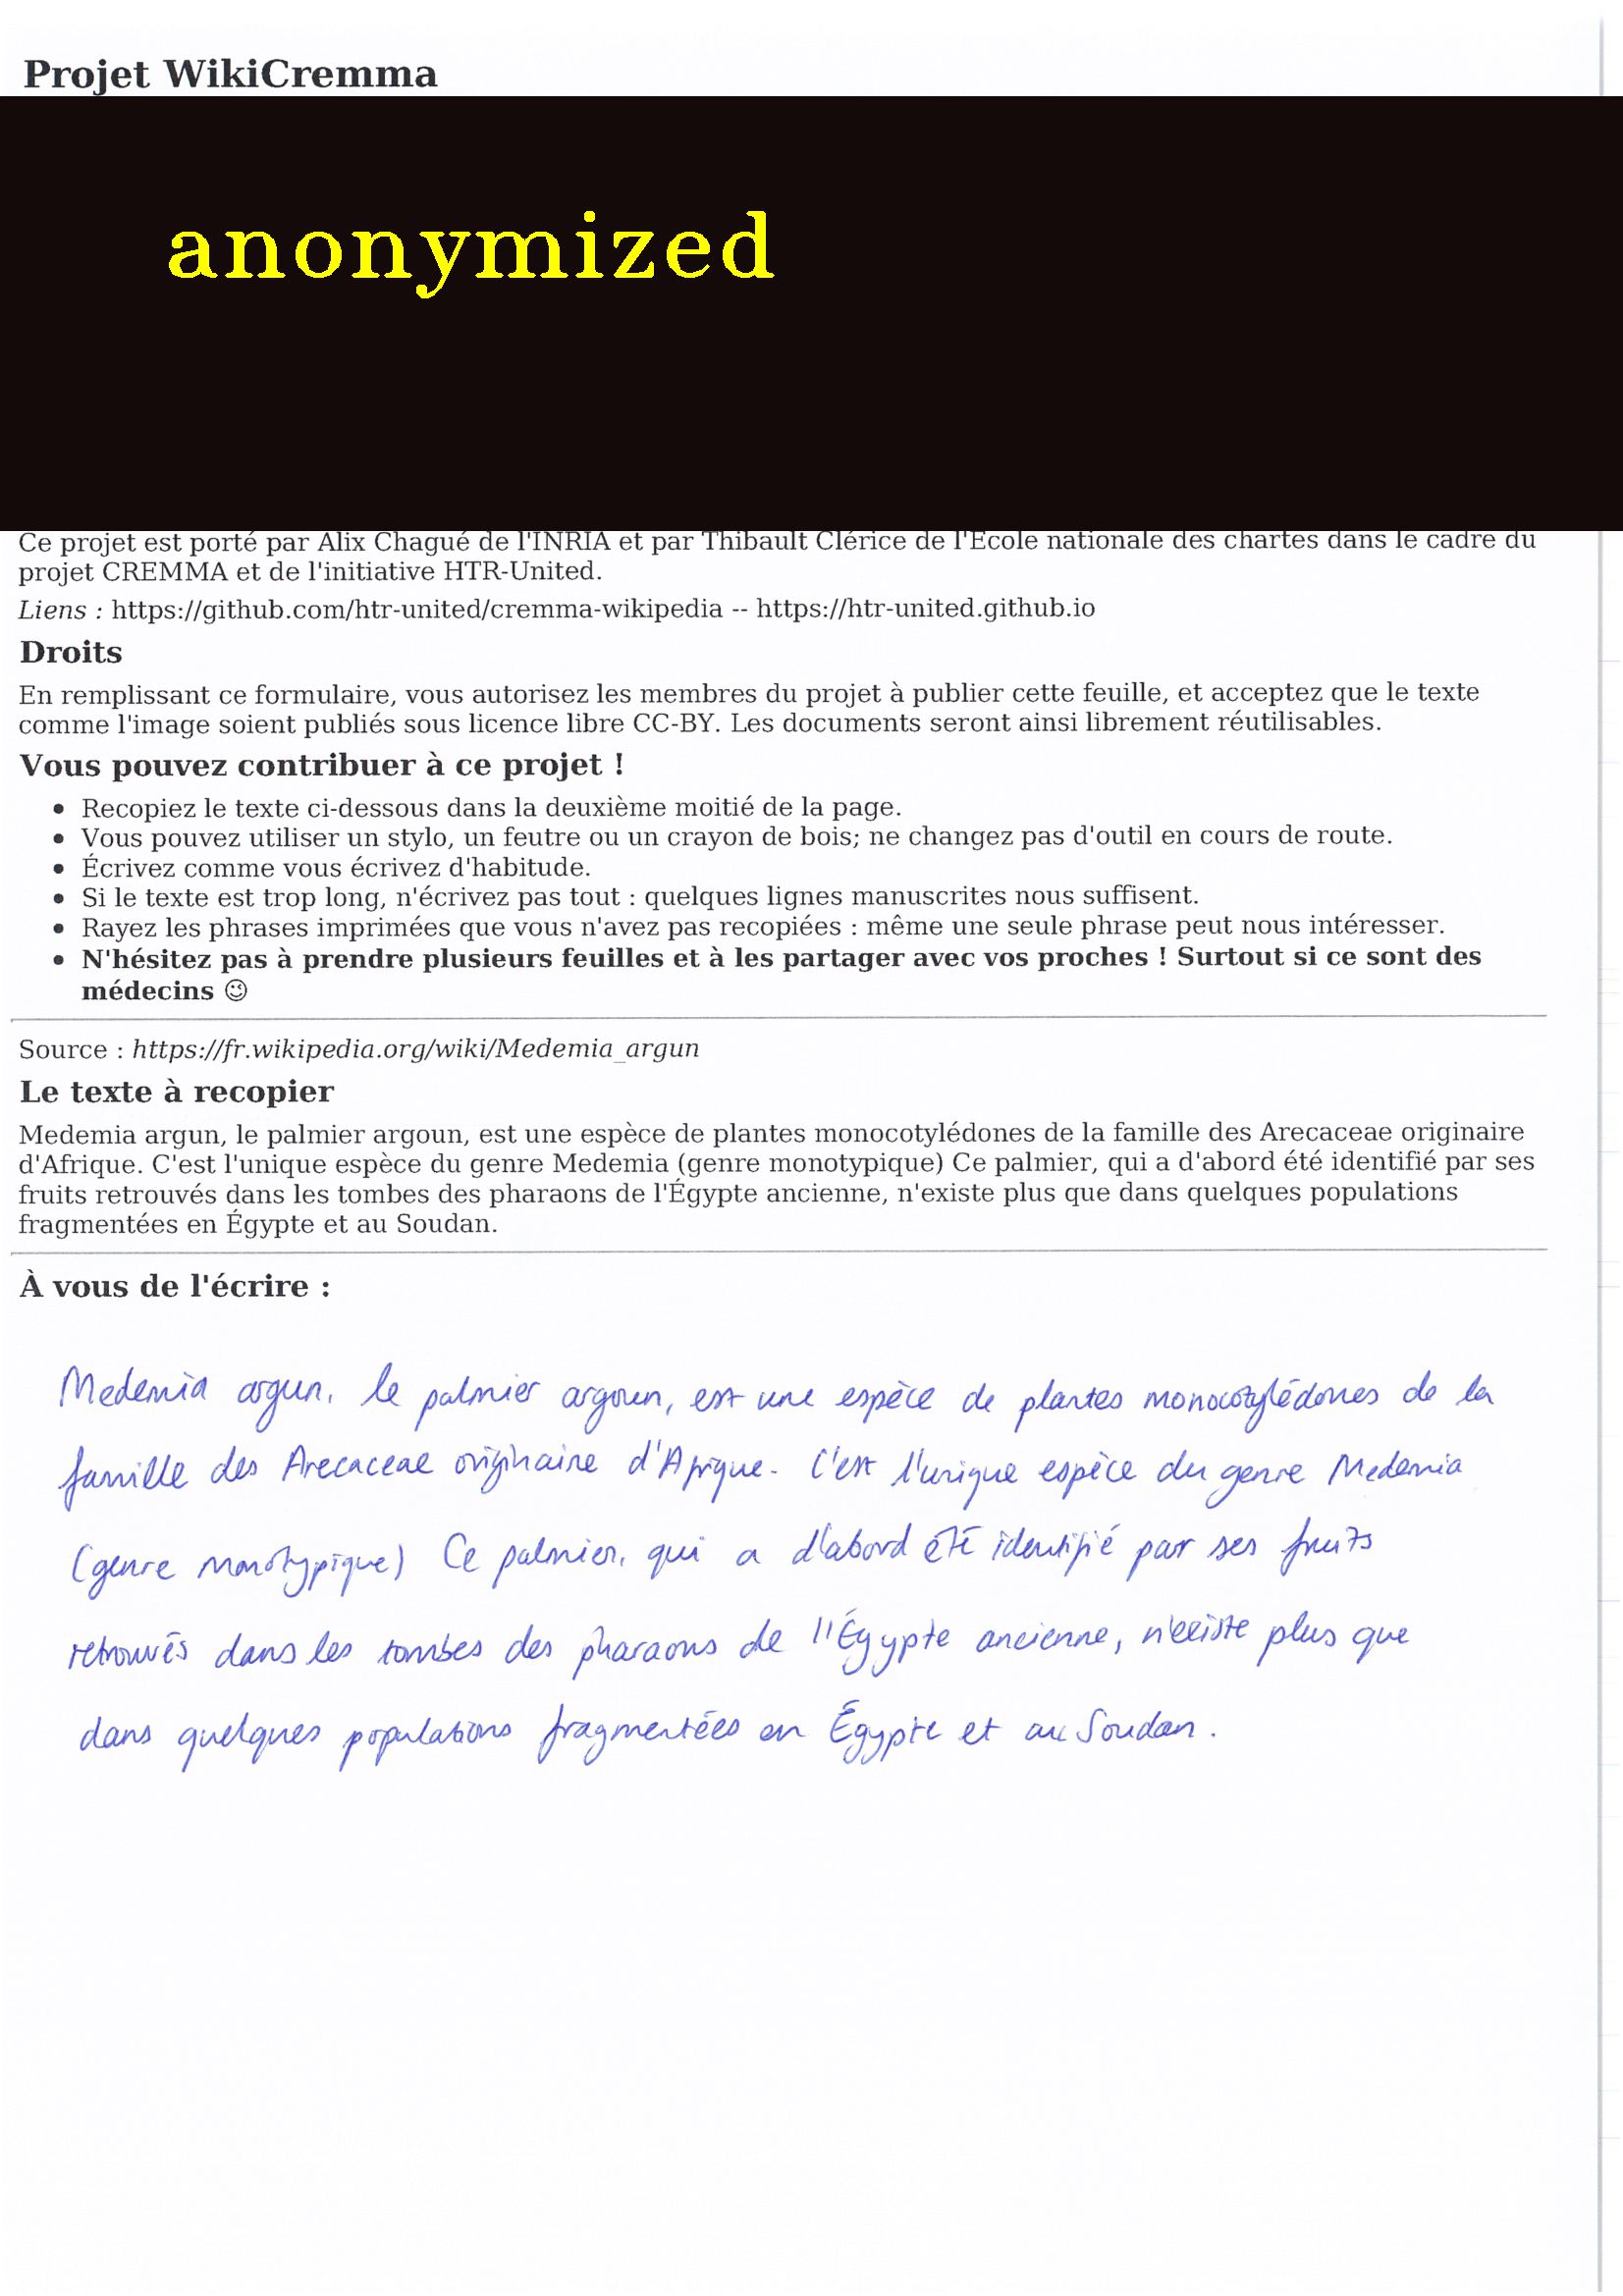 Projet WikiCremma
anonymized
Ce projet est porté par Alix Chagué de l'INRIA et par Thibault Clérice de l'École nationale des chartes dans le cadre du
projet CREMMA et de l'initiative HTR-United.
Liens : https://github.com/htr-united/cremma-wikipedia -- https://htr-united.github.io
Droits
En remplissant ce formulaire, vous autorisez les membres du projet à publier cette feuille, et acceptez que le texte
comme l'image soient publiés sous licence libre CC-BY. Les documents seront ainsi librement réutilisables.
Vous pouvez contribuer à ce projet !
• Recopiez le texte ci-dessous dans la deuxième moitié de la page.
• Vous pouvez utiliser un stylo, un feutre ou un crayon de bois; ne changez pas d'outil en cours de route.
• Écrivez comme vous écrivez d'habitude.
• Si le texte est trop long, n'écrivez pas tout : quelques lignes manuscrites nous suffisent.
• Rayez les phrases imprimées que vous n'avez pas recopiées : même une seule phrase peut nous intéresser.
• N'hésitez pas à prendre plusieurs feuilles et à les partager avec vos proches ! Surtout si ce sont des
médecins 😉
Source : https://fr.wikipedia.org/wiki/Medemia_argun
Le texte à recopier
Medemia argun, le palmier argoun, est une espèce de plantes monocotylédones de la famille des Arecaceae originaire
d'Afrique. C'est l'unique espèce du genre Medemia (genre monotypique) Ce palmier, qui a d'abord été identifié par ses
fruits retrouvés dans les tombes des pharaons de l'Égypte ancienne, n'existe plus que dans quelques populations
fragmentées en Égypte et au Soudan.
À vous de l'écrire :
Medemia argun, le palmier argoun, est une espèce de plantes monocotylédones de la
famille des Arecaceae originaire d'Afrique. C'est l'unique espèce du genre Medemia
(genre monotypique) Ce palmier, qui a d'abord été identifié par ses fruits
retrouvés dans les tombes des pharaons de l'Égypte ancienne, n'existe plus que
dans quelques populations fragmentées en Égypte et au Soudan.